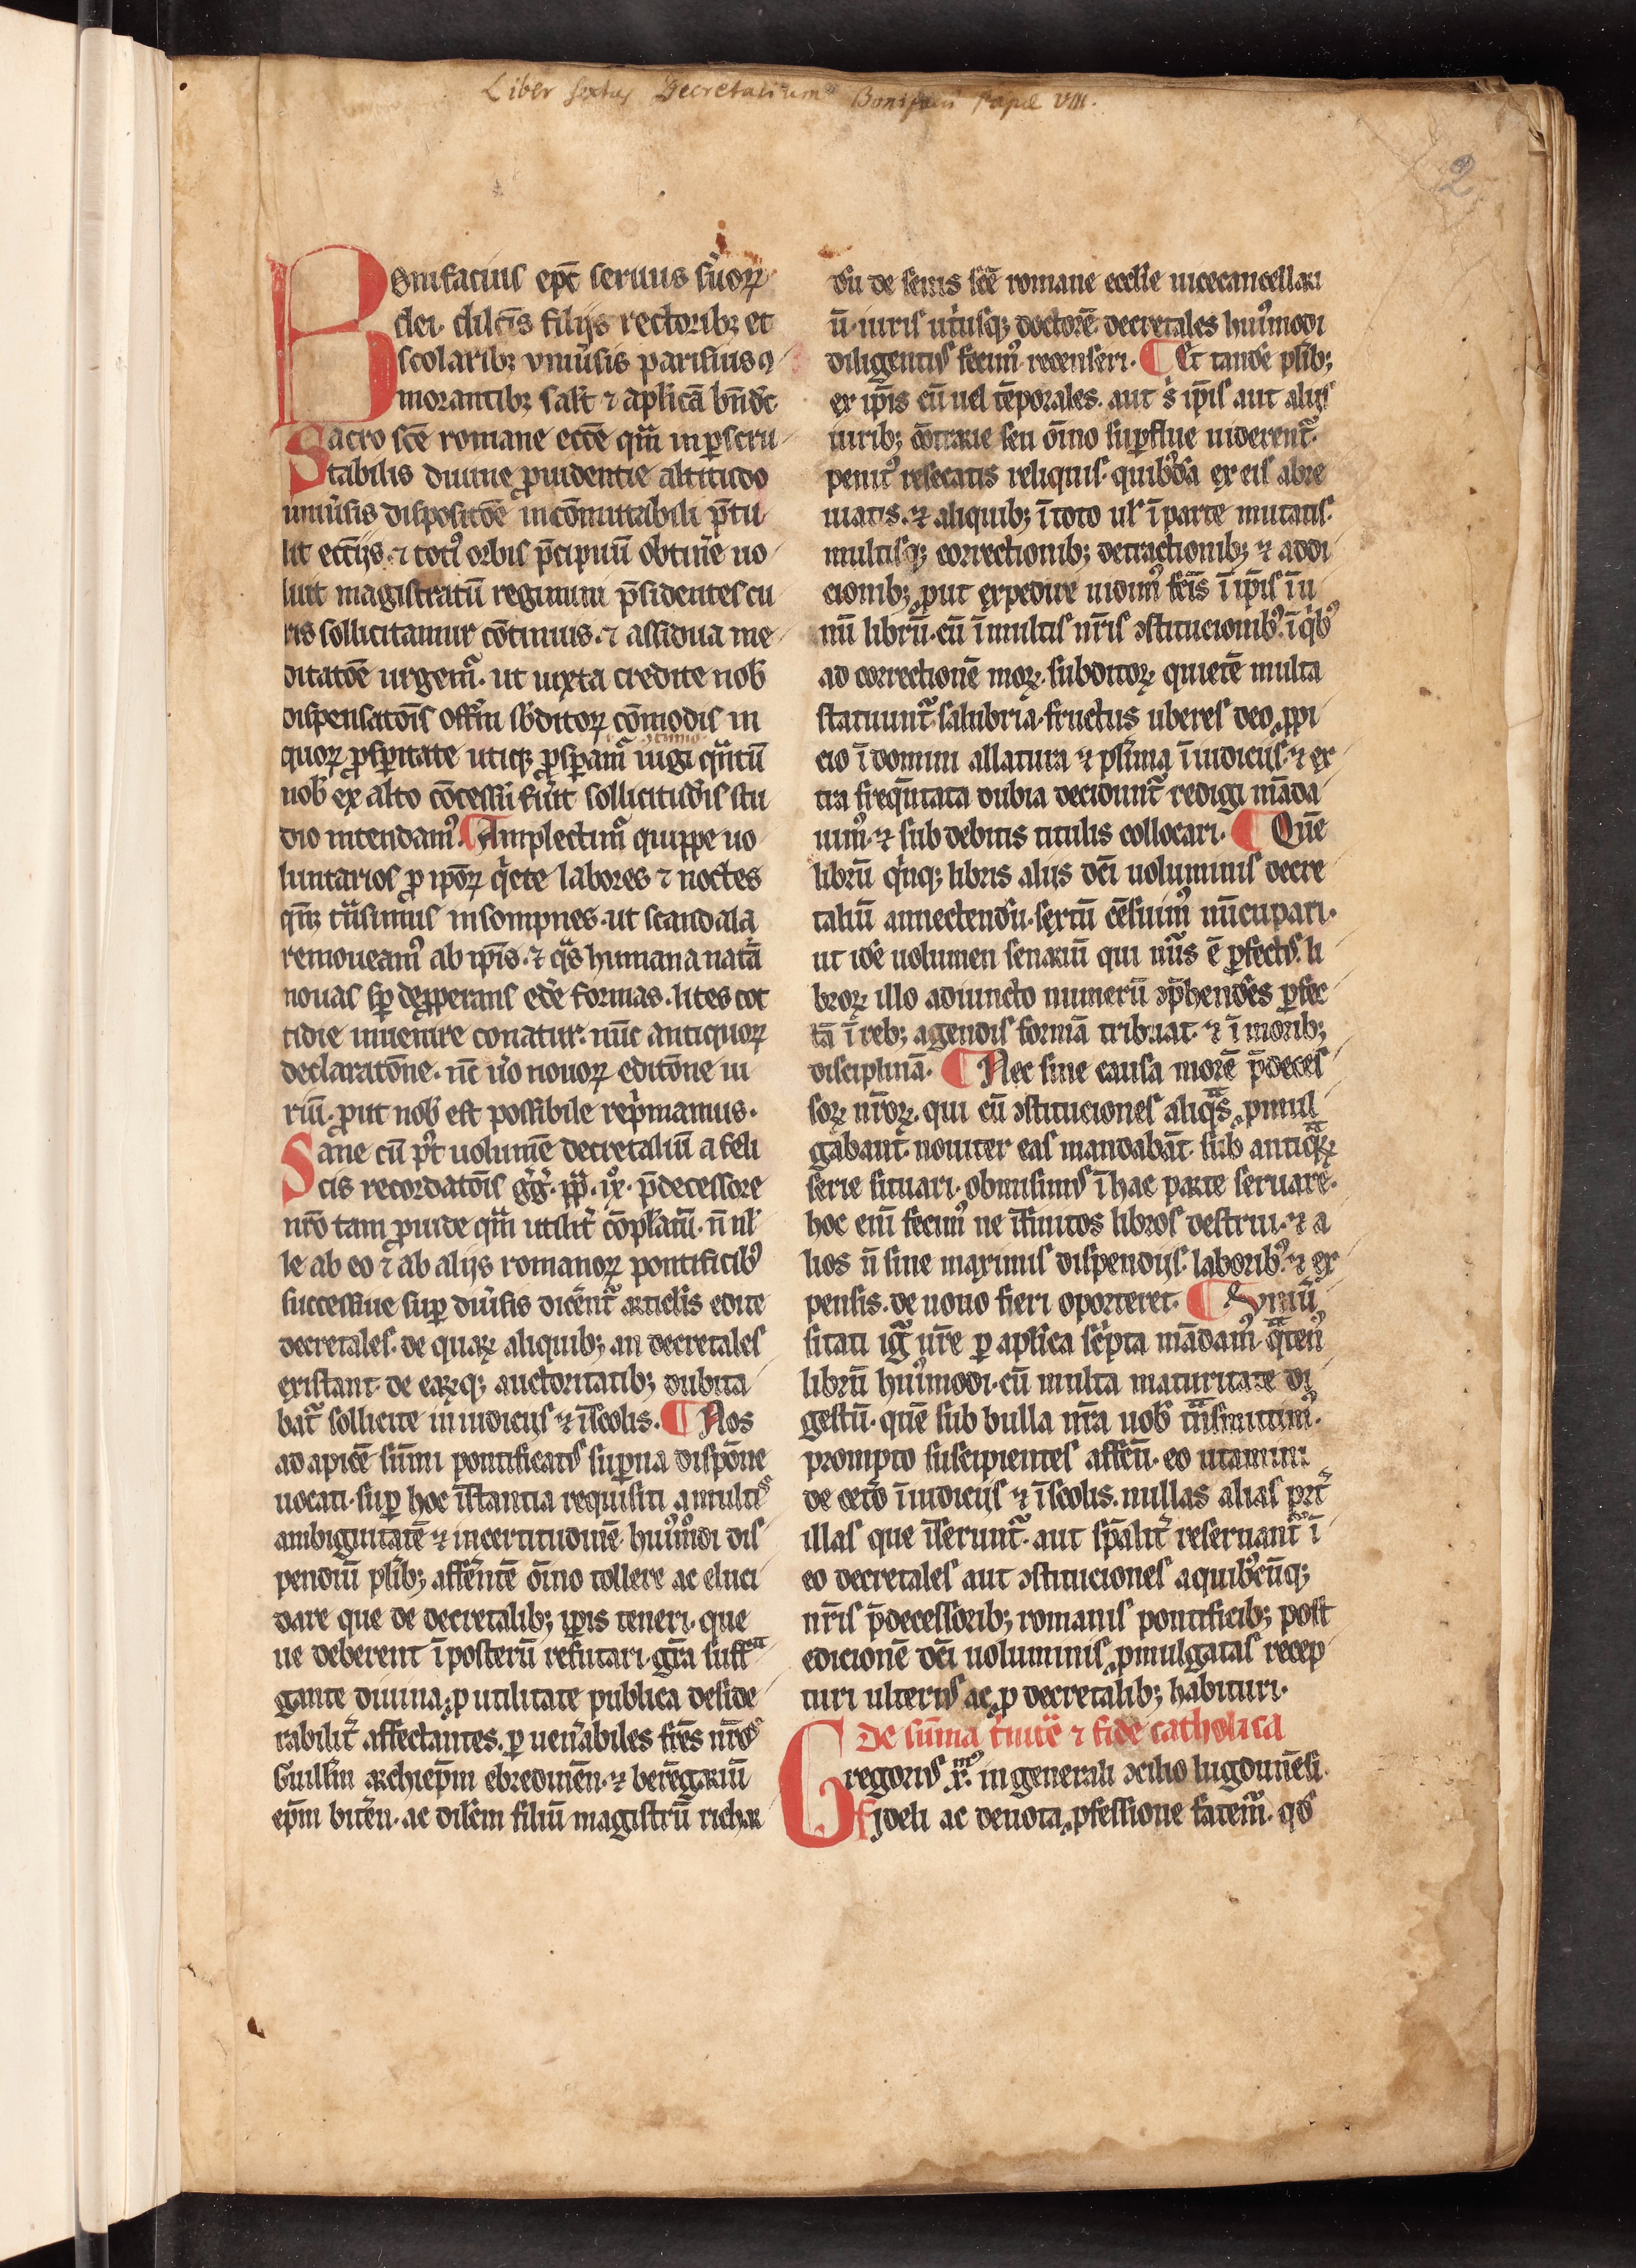 Liber sextus Decretalium Bonifacii Papæ VIII.
2
Bonifacius ep̄c seruus s̾uoꝝ
dei. dilc̄is filijs rectoribꝫ et
scolaribꝫ vniu̾sis parisius ꝯ
morantibꝫ salt̄ ⁊ aplicā bn̄dc̄
Sacro sc̄e romane ecc̄e qm̄ inꝑscru
tabilis diuine ꝓuidentie altitudo
uniu̾sis dispositōe incōmutabili p̄tu
lit ecc̄ijs. ⁊ totꝰ orbis p̄cipuū obtin̾e uo
luit magistratū regimini p̄sidentes cu
ris sollicitamur cōtinuis. ⁊ assidua me
ditatōe urgem᷑. ut iuxta credite nob̄
dispensatōis offm̄ sb̾ditoꝝ cōmodis in
quoꝝ ꝓsꝑitate utiqꝫ ꝓsꝑam᷑ iugi qn̄tū
nob̄ ex alto cōcessū fu̾it sollicitudīs stu
dio intendamꝰ. ¶ Amplectim᷑ quippe uo
luntarios ꝓ ip̄oꝝ q̇ete labores ⁊ noctes
qn̄qꝫ t̄nsimus insompnes. ut scandala
remoueamꝰ ab ip̄is. ⁊ q̄s humana nat᷑a
nouas sꝑ deꝓperans ed̾e formas. lites cot
tidie inuenire conatur. nūc antiquoꝝ
declaratōne. nc̄ u̾o nouoꝝ editōne iu
riū. ꝓut nob̄ est possibile rep̾mamus.
Sane cū p̾t uolumē decretaliū a feli
cis recordatōis gg̾. pp̄. ix. p̄decessore
nr̄o tam ꝓuide qm̄ utilit̾ cōpilatū. n̄ nl̄
le ab eo ⁊ ab alijs romanoꝝ pontificibꝰ
successiue suꝑ diu̾sis dicēnt᷑ articlis edite
decretales. de quaꝝ aliquibꝫ an decretales
existant. de eaꝝqꝫ auctoritatibꝫ dubita
bat᷑ sollicite in iudicijs ⁊ ī scolis. ¶ Nos
ad apicē sūmi pontificatꝰ suꝑna dispōne
uocati. suꝑ hoc īstantia requisiti a multis
ambiguitatē ⁊ incertitudinē huiꝰmodi dis
pendiū pl̾ibꝫ affe̾ntē ōino tollere ac eluci
dare que de decretalibꝫ ip̄is teneri. que
ue deberent ī posterū refutari. gr̄a suff᷑a
gante diuina. ꝓ utilitate publica deside
rabilit̾ affectantes. ꝑ uen̾abiles fr̄es nr̄os
Guillm̄ archiep̄m ebredunēn. ⁊ beregariū
ep̄m bitēn. ac dilc̄m filiū magistrū richar
dū de senis sc̄e romane eccl̄ie uicecancellari
ū. iuris ut̾usqꝫ doctorē. decretales huiꝰmodi
diligentiꝰ fecimꝰ recenseri. ¶ Et tandē pl̾ibꝫ
ex ip̄is cū uel tēporales. aut s̾ ip̄is aut alijs
iuribꝫ cōtrarie seu ōino suꝑflue uiderent᷑.
penitꝰ resecatis reliquis. quibꝰdā ex eis abre
uiatis. ⁊ aliquibꝫ ī toto ul̾ ī parte mutatis.
multisqꝫ correctionibꝫ detractionibꝫ ⁊ addi
cionibꝫ ꝓut expedire uidimꝰ fc̄is ī ip̄is ī u
nū librū. cū ī multis nr̄is ꝯstitucionibꝰ. ī q̇bꝰ
ad correctionē moꝝ. subditoꝝ quietē multa
statuunt᷑ salubria. fructus uberes deo ꝓpi
cio ī domini allatura ⁊ pl̾ima ī iudicijs ⁊ ex
tra freqn̄tata dubia decidunt᷑ redigi māda
uimꝰ. ⁊ sub debitis titulis collocari. ¶ Quē
librū q̇nqꝫ libris alijs dc̄i uoluminis decre
taliū annectendū. sextū cēsuimꝰ nūcupari.
ut idē uolumen senariū qui nūs ē ꝑfectꝰ. li
broꝝ illo adiuncto numerū ꝯp̄hendēs ꝑfec
tā ī rebꝫ agendis formā tribuat ⁊ ī moribꝫ
disciplinā. ¶ Nec sine causa morē p̄deces
soꝝ nr̄oꝝ. qui cū ꝯstituciones aliq̄s ꝓmul
gabant. nouiter eas mandabāt sub antiq̄ꝝ
serie situari. obmisimꝰ ī hac parte seruare.
hoc eiū fecimꝰ ne īfinitos libros destrui. ⁊ a
lios n̄ sine maximis dispendijs. laboribꝰ. ⁊ ex
pensis. de nouo fieri oporteret. ¶ Vniū
sitati ig᷑ ur̄e ꝑ aplica sc̾pta mādamꝰ q̄tenꝰ
librū huiꝰmodi. cū multa maturitate di
gestū. quē sub bulla nr̄a uob̄ t̄nsmittimꝰ.
prompto suscipientes affc̄u. eo utamini
de cet̾o ī iudicijs ⁊ ī scolis. nullas alias p̾t̾
illas que īserunt᷑. aut sp̄alit̾ reseruant᷑ ī
eo decretales aut ꝯstituciones a quibꝰcūqꝫ
nr̄is p̄decessoribꝫ romanis pontificibꝫ post
edicionē dc̄i uoluminis ꝓmulgatas recep
turi ulteriꝰ ac ꝓ decretalibꝫ habituri.
De sūma t̾nitē ⁊ fide catholica
Gregoriꝰ x.ᵐꝰ in generali ꝯcilio lugdunēsi
Fideli ac deuota ꝓfessione fatem᷑. qd̾